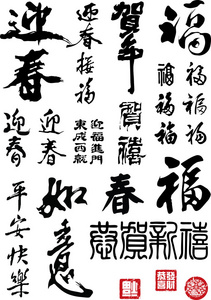 迎春
迎春接福
賀年
福
福福
福福
福福
迎春
迎春
迎福進門
東成西就
賀禧
春
福
平安快樂
如意
恭賀新禧
恭喜發財